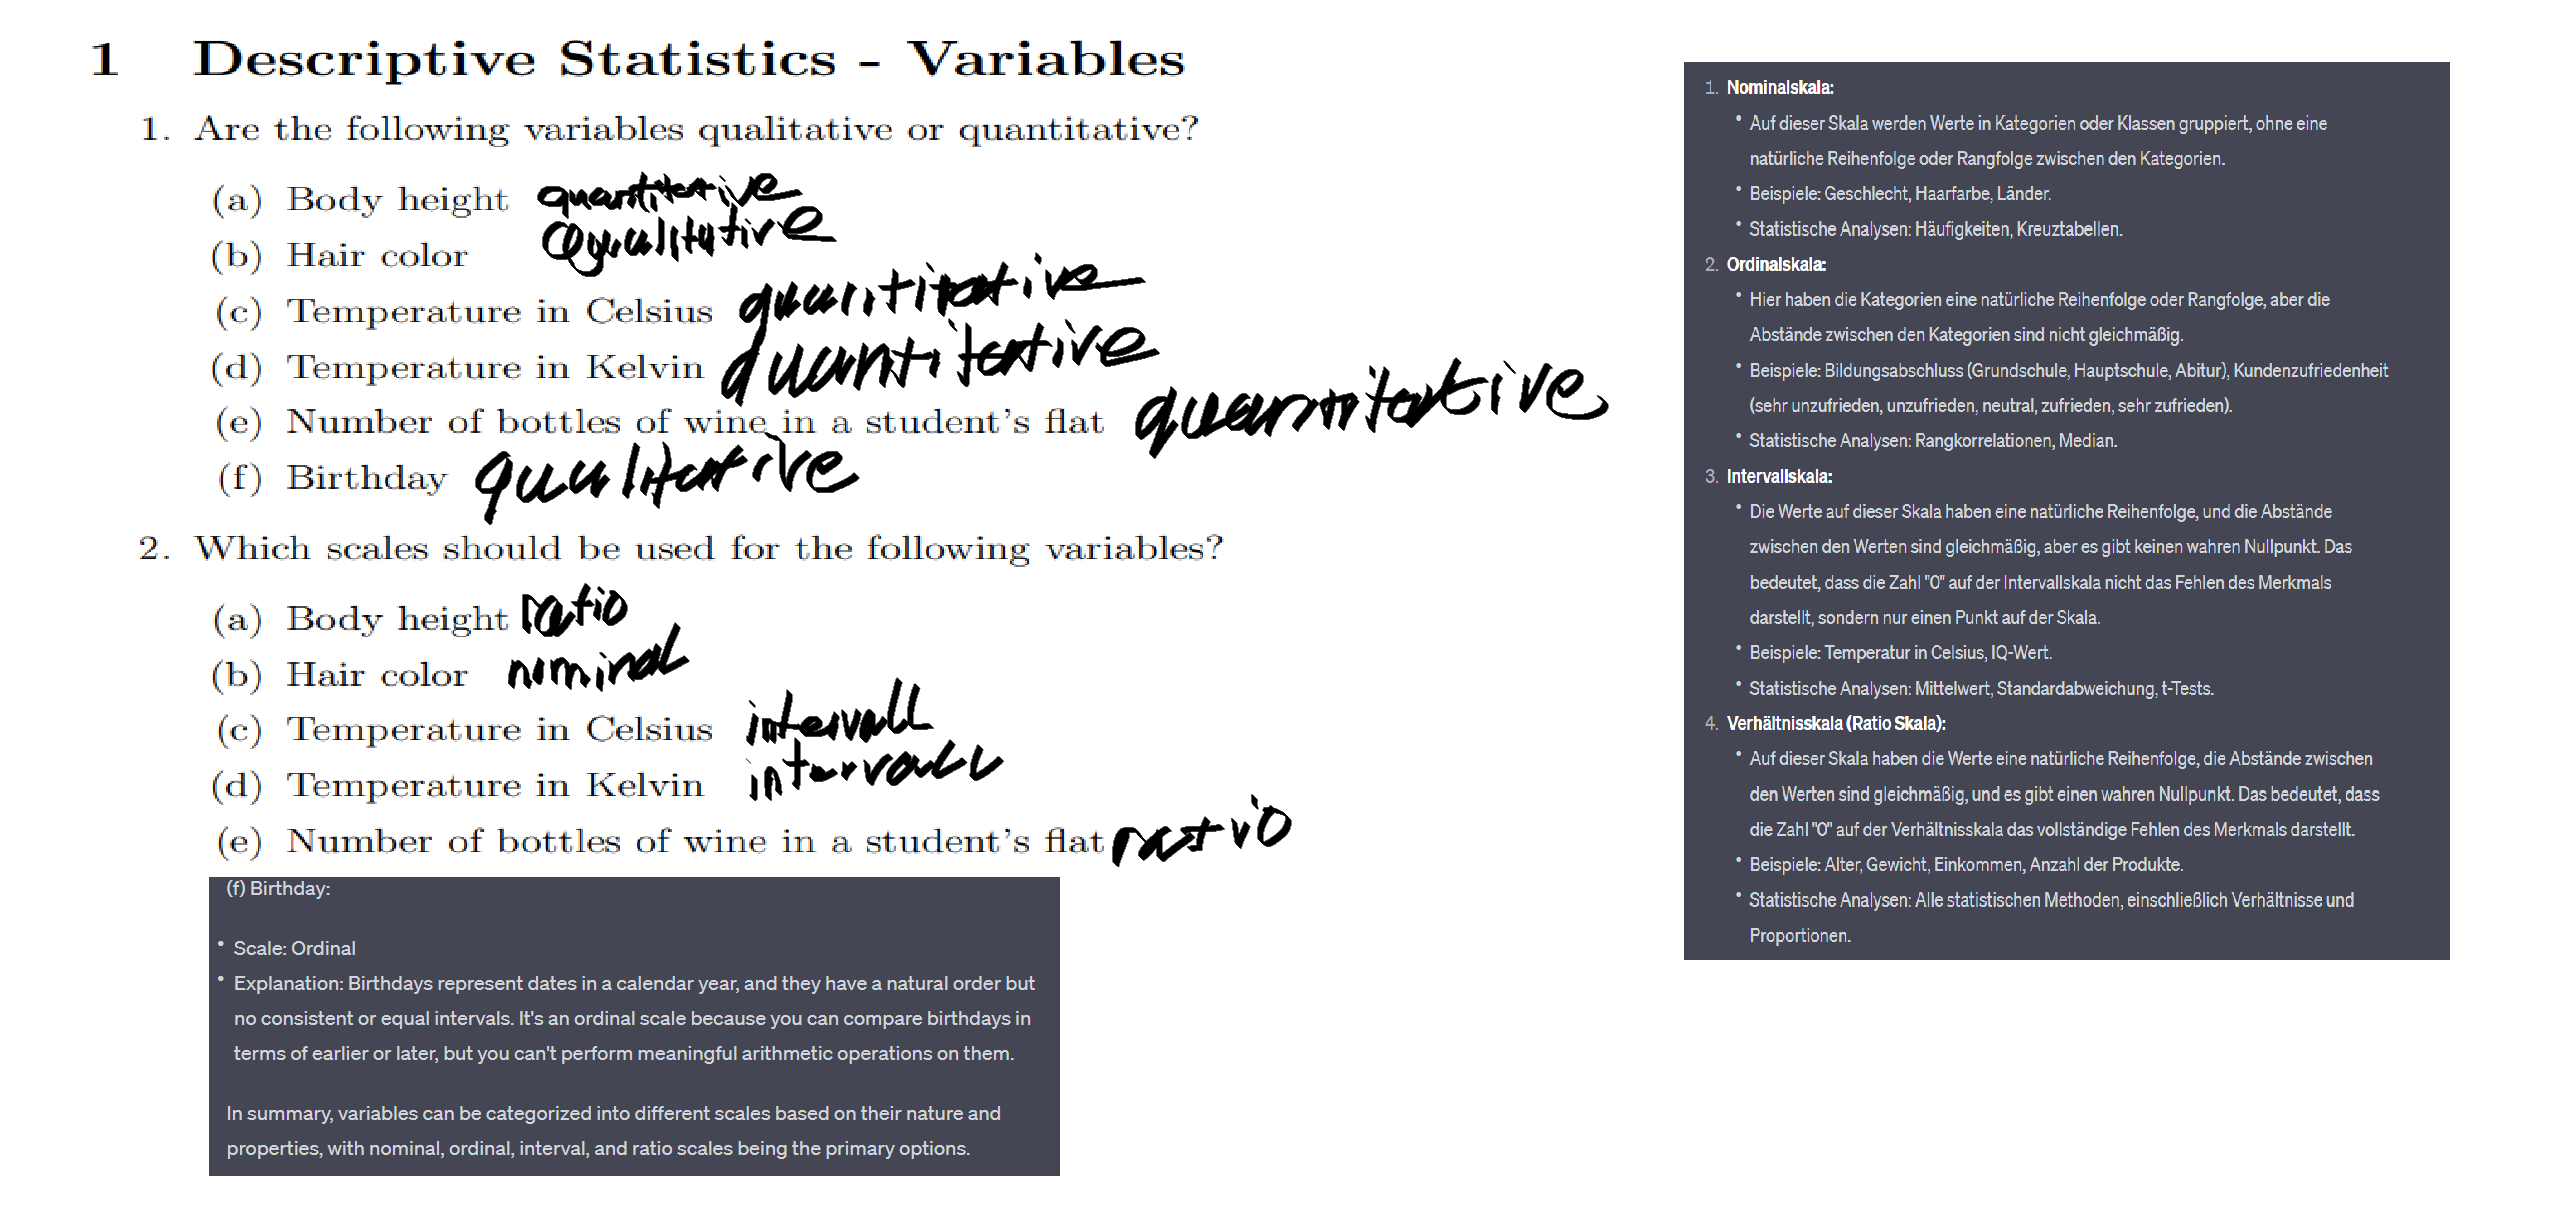 1 Descriptive Statistics - Variables
1. Are the following variables qualitative or quantitative?
(a) Body height quantitative
(b) Hair color qualitative
(c) Temperature in Celsius quantitative
(d) Temperature in Kelvin quantitative
(e) Number of bottles of wine in a student's flat quantitative
(f) Birthday qualitative
2. Which scales should be used for the following variables?
(a) Body height ratio
(b) Hair color nominal
(c) Temperature in Celsius intervall
(d) Temperature in Kelvin intervall
(e) Number of bottles of wine in a student's flat ratio
(f) Birthday:
• Scale: Ordinal
• Explanation: Birthdays represent dates in a calendar year, and they have a natural order but
no consistent or equal intervals. It's an ordinal scale because you can compare birthdays in
terms of earlier or later, but you can't perform meaningful arithmetic operations on them.
In summary, variables can be categorized into different scales based on their nature and
properties, with nominal, ordinal, interval, and ratio scales being the primary options.
1. Nominalskala:
• Auf dieser Skala werden Werte in Kategorien oder Klassen gruppiert, ohne eine
natürliche Reihenfolge oder Rangfolge zwischen den Kategorien.
• Beispiele: Geschlecht, Haarfarbe, Länder.
• Statistische Analysen: Häufigkeiten, Kreuztabellen.
2. Ordinalskala:
• Hier haben die Kategorien eine natürliche Reihenfolge oder Rangfolge, aber die
Abstände zwischen den Kategorien sind nicht gleichmäßig.
• Beispiele: Bildungsabschluss (Grundschule, Hauptschule, Abitur), Kundenzufriedenheit
(sehr unzufrieden, unzufrieden, neutral, zufrieden, sehr zufrieden).
• Statistische Analysen: Rangkorrelationen, Median.
3. Intervallskala:
• Die Werte auf dieser Skala haben eine natürliche Reihenfolge, und die Abstände
zwischen den Werten sind gleichmäßig, aber es gibt keinen wahren Nullpunkt. Das
bedeutet, dass die Zahl "0" auf der Intervallskala nicht das Fehlen des Merkmals
darstellt, sondern nur einen Punkt auf der Skala.
• Beispiele: Temperatur in Celsius, IQ-Wert.
• Statistische Analysen: Mittelwert, Standardabweichung, t-Tests.
4. Verhältnisskala (Ratio Skala):
• Auf dieser Skala haben die Werte eine natürliche Reihenfolge, die Abstände zwischen
den Werten sind gleichmäßig, und es gibt einen wahren Nullpunkt. Das bedeutet, dass
die Zahl "0" auf der Verhältnisskala das vollständige Fehlen des Merkmals darstellt.
• Beispiele: Alter, Gewicht, Einkommen, Anzahl der Produkte.
• Statistische Analysen: Alle statistischen Methoden, einschließlich Verhältnisse und
Proportionen.